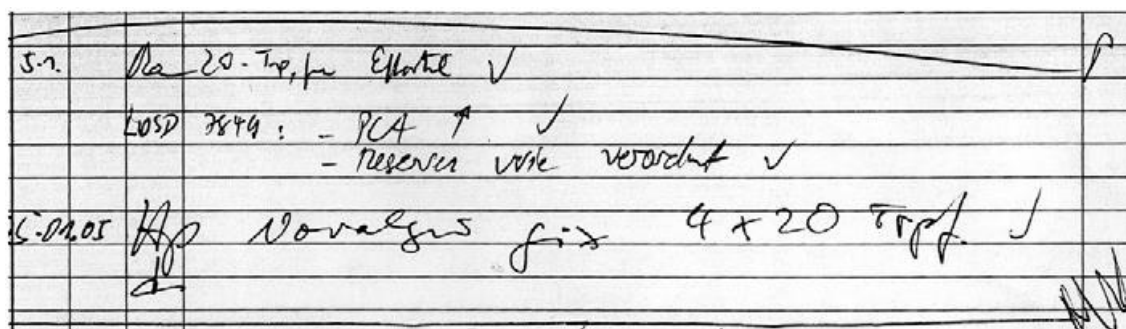 5.1. 20 Trpf. Effortil ✓
7844: - PCA ↑ ✓
- Reserven wie verordnet ✓
5.01.05 Novalgin fix 4 x 20 Trpf. ✓